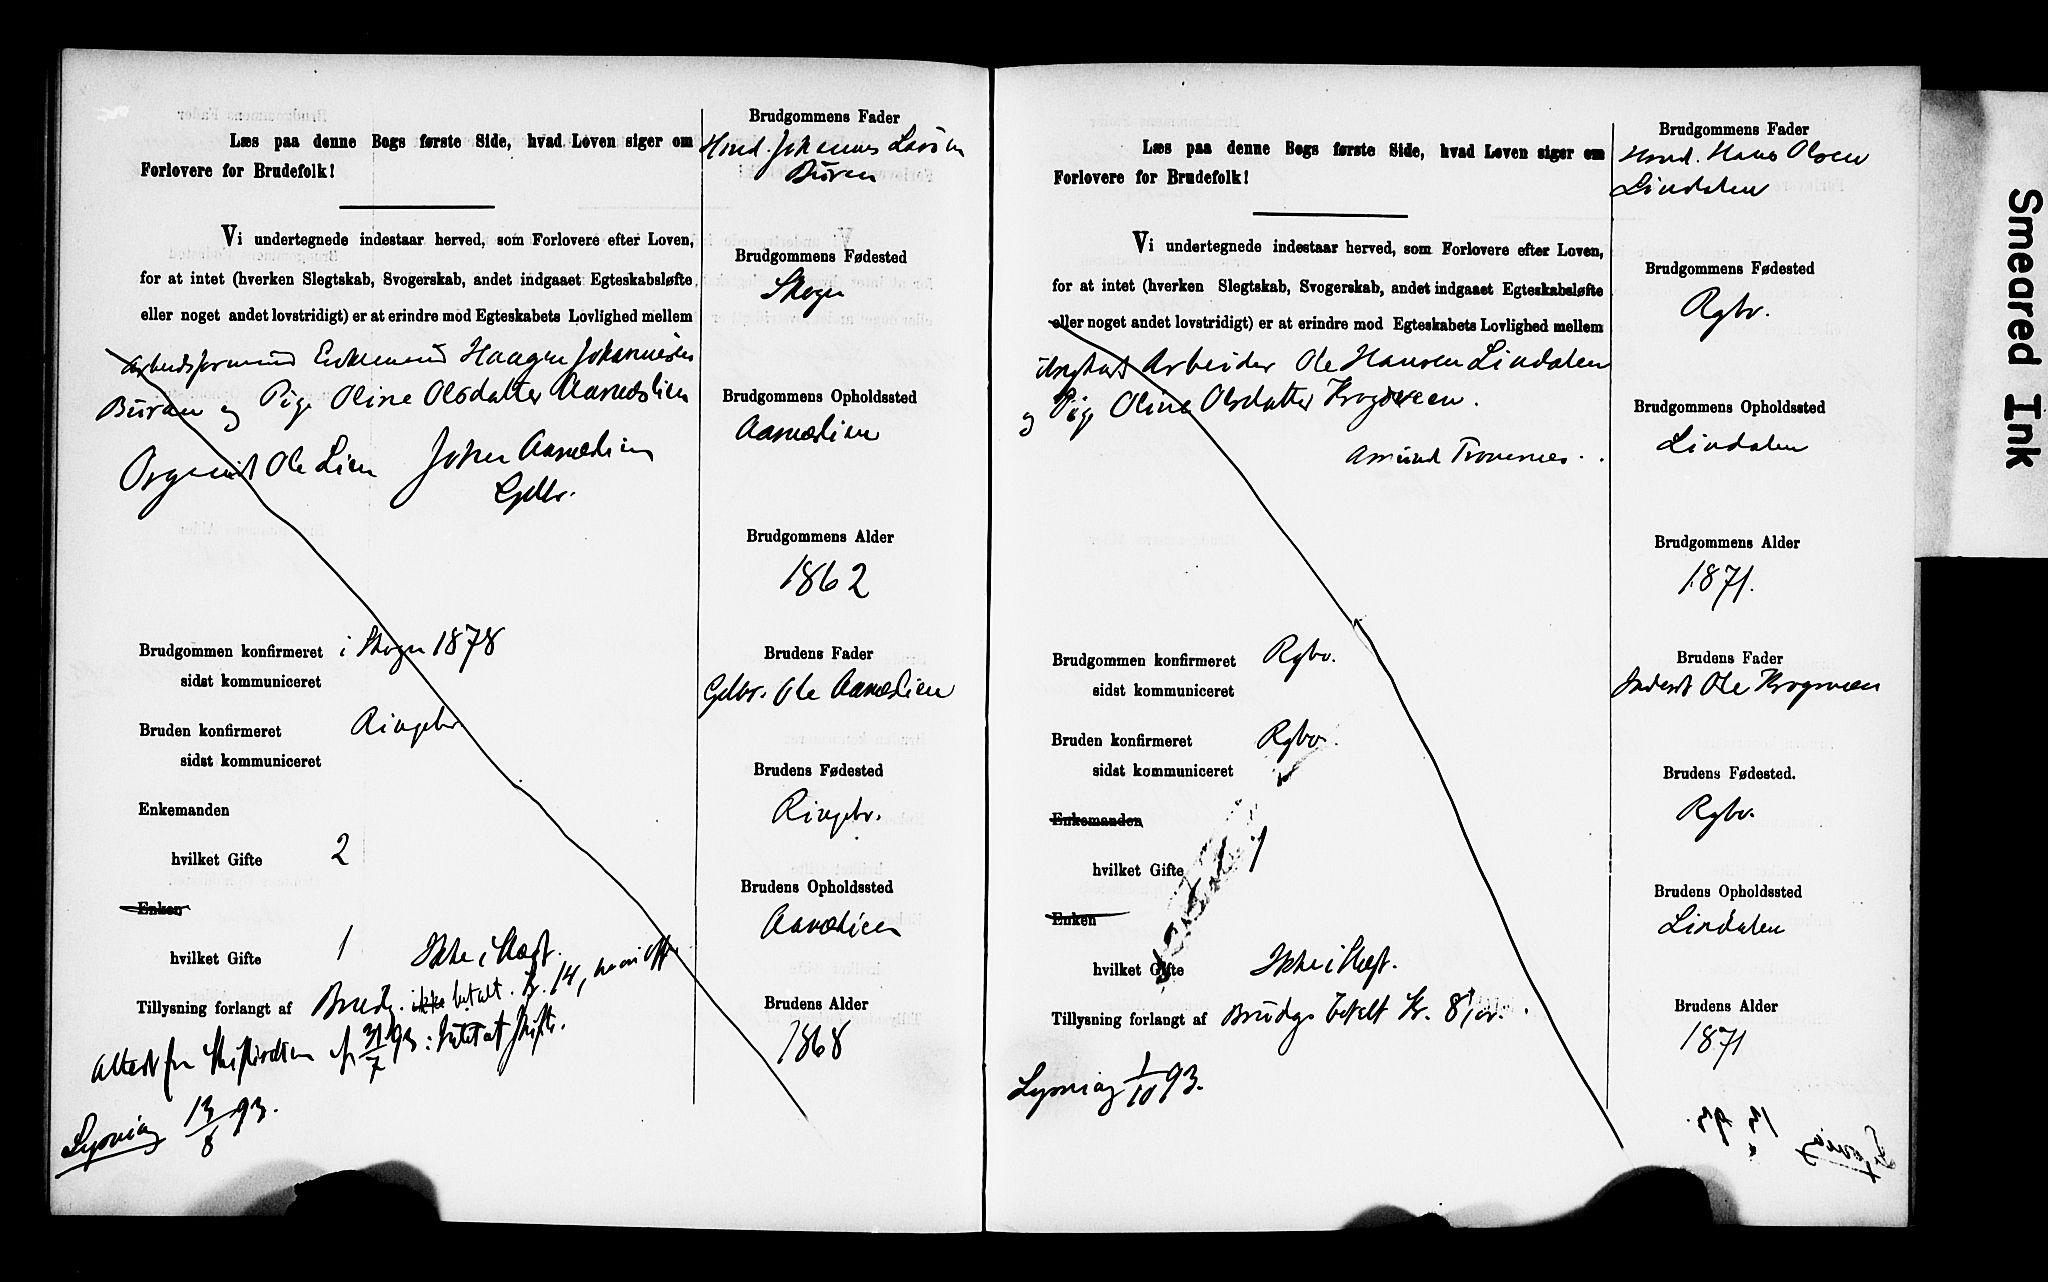 Læs paa denne Bogs første Side, hvad Loven siger om
Forlovere for Brudefolk!
Vi undertegnede indestaar herved, som Forlovere efter Loven,
for at intet (hverken Slegtskab, Svogerskab, andet indgaaet Egteskabsløfte
eller noget andet lovstridigt) er at erindre mod Egteskabets Lovlighed mellem
Arbeidsformand Enkemand Haagen Johannesen
Buran og Pige Oline Olsdatter Aarnæslien
Ole Lien Johan Aarnæslien
Gdbr.
Brudgommen konfirmeret i Skogn 1878
sidst kommuniceret
Bruden konfirmeret Ringebo
sidst kommuniceret
Enkemanden
hvilket Gifte 2
Enken
hvilket Gifte 1 Ikke i Slægt.
Tillysning forlangt af Brudg. ikke betalt. Kr. 14,
Attest fra Skifteretten af 31/7 93: Intet at skifte.
Lysning 13/8 93.
Brudgommens Fader
Johannes Larsen
Buran
Brudgommens Fødested
Skogn
Brudgommens Opholdssted
Aarnæslien
Brudgommens Alder
1862
Brudens Fader
Gdbr. Ole Aarnæslien
Brudens Fødested
Ringebo.
Brudens Opholdssted
Aarnæslien
Brudens Alder
1868
Læs paa denne Bogs første Side, hvad Loven siger om
Forlovere for Brudefolk!
Vi undertegnede indestaar herved, som Forlovere efter Loven,
for at intet (hverken Slegtskab, Svogerskab, andet indgaaet Egteskabsløfte
eller noget andet lovstridigt) er at erindre mod Egteskabets Lovlighed mellem
Ungkarl Arbeider Ole Hansen Lindalen
og Pige Oline Olsdatter Krogsveen.
Amund Tronsnes.
Brudgommen konfirmeret Rgbo.
sidst kommuniceret
Bruden konfirmeret Rgbo.
sidst kommuniceret
Enkemanden
hvilket Gifte 1
Enken
hvilket Gifte Ikke i Slægt.
Tillysning forlangt af Brudg. betalt Kr. 8
Lysning 1/10 93.
Brudgommens Fader
Hans Olsen
Lindalen
Brudgommens Fødested
Rgbo.
Brudgommens Opholdssted
Lindalen
Brudgommens Alder
1871.
Brudens Fader
Inderst Ole Krogsveen
Brudens Fødested.
Rgbo.
Brudens Opholdssted
Lindalen
Brudens Alder
1871
Smeared Ink